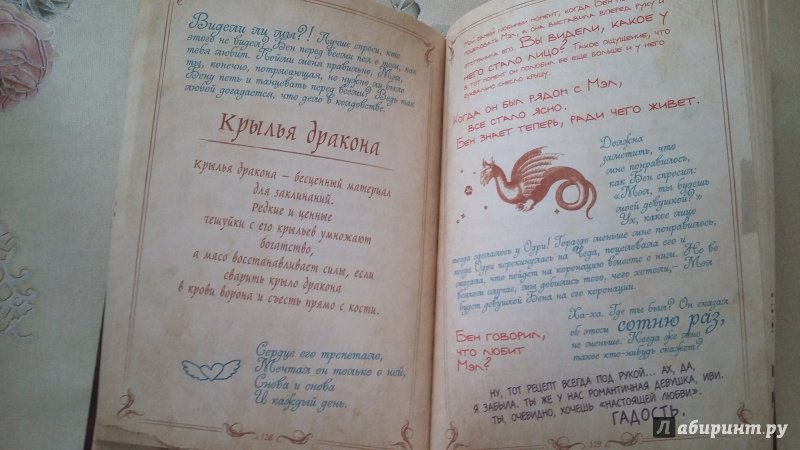 Видели ли мы?! Лучше спроси, кто
этого не видел? Бен перед всеми пел о том, как
тебя любит. Пойми меня правильно, Мэл,
ты, конечно, потрясающая, но нужно ли было
Бену петь и танцевать перед всеми? Ведь так
любой догадается, что дело в колдовстве.
Крылья дракона
Крылья дракона – бесценный материал
для заклинаний.
Редкие и ценные
чешуйки с его крыльев умножают
богатство,
а мясо восстанавливает силы, если
сварить крыло дракона
в крови ворона и съесть прямо с кости.
Сердце его трепетало,
Мечтал он только о ней,
Снова и снова
И каждый день.
128
Мой самый любимый момент, когда Бен
Мэл, а она выставила вперед руку и
его. Вы видели, какое у
него стало лицо? Такое ощущение, что
в тот момент он полюбил ее еще больше и у него
буквально снесло крышу.
Когда он был рядом с Мэл,
все стало ясно.
Бен знает теперь, ради чего живет.
Должна
заметить, что
мне понравилось,
как Бен спросил:
«Мэл, ты будешь
моей девушкой?»
Ух, какое лицо
тогда сделалось у Одри! Гораздо меньше мне понравилось,
когда Одри перекинулась на Чеда, поцеловала его и
сказала, что пойдет на коронацию вместе с ним. Но во
всяком случае, мы добились того, чего хотели,– Мэл
будет девушкой Бена на его коронации.
Ха-ха. Где ты был? Он сказал
об этом сотню раз,
не меньше. Когда же мне
такое кто-нибудь скажет?
Бен говорил,
что любит
Мэл?
Ну, тот рецепт всегда под рукой... Ах, да,
я забыла. Ты же у нас романтичная девушка, Иви.
Ты, очевидно, хочешь «настоящей любви».
Гадость.
129
Лабиринт.ру